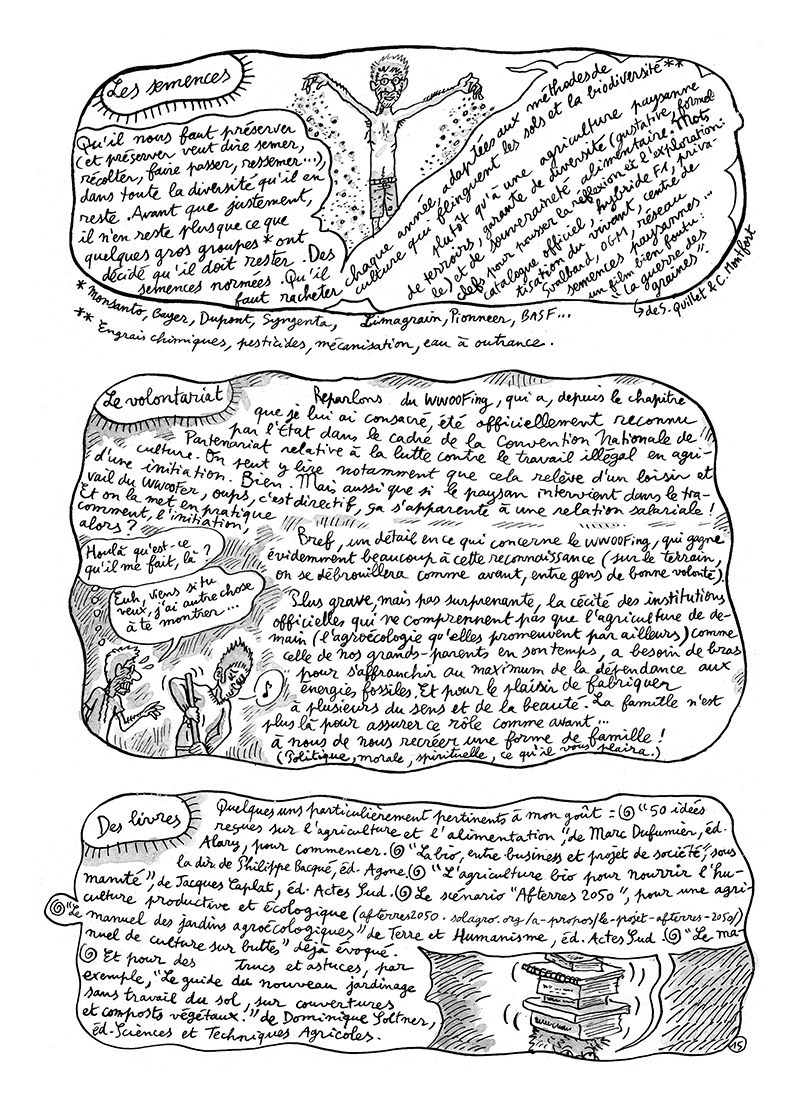 Les semences
Qu'il nous faut préserver
(et préserver veut dire semer,
récolter, faire passer, ressemer...),
dans toute la diversité qu'il en
reste. Avant que justement,
il n'en reste plus que ce que
quelques gros groupes * ont
décidé qu'il doit rester. Des
semences normées. Qu'il
faut racheter
chaque année, adaptées aux méthodes de
culture qui flinguent les sols et la biodiversité **
plutôt qu'à une agriculture paysanne
de terroirs, garante de diversité (gustative, formel
le) et de souveraineté alimentaire. Mots
clefs pour pousser la réflexion et l'exploration:
catalogue officiel, hybride F1, priva-
tisation du vivant, centre de
Svalbard, OGM, réseau
semences paysannes...
un film bien foutu:
"La guerre des
graines".
de S. Quillet & C. Montfort
* Monsanto, Bayer, Dupont, Syngenta, Limagrain, Pionneer, BASF...
** Engrais chimiques, pesticides, mécanisation, eau à outrance.
Le volontariat
Reparlons du WWOOFing, qui a, depuis le chapitre
que je lui ai consacré, été officiellement reconnu
par l'État dans le cadre de la Convention Nationale de
Partenariat relative à la lutte contre le travail illégal en agri-
culture. On peut y lire notamment que cela relève d'un loisir et
d'une initiation. Bien. Mais aussi que si le paysan intervient dans le tra-
vail du WWOOFer, oups, c'est directif, ça s'apparente à une relation salariale !
Et on la met en pratique
comment, l'initiation,
alors ?
Houlà qu'est-ce
qu'il me fait, là ?
Euh, viens si tu
veux, j'ai autre chose
à te montrer...
Bref, un détail en ce qui concerne le WWOOFing, qui gagne
évidemment beaucoup à cette reconnaissance (sur le terrain,
on se débrouillera comme avant, entre gens de bonne volonté).
Plus grave, mais pas surprenante, la cécité des institutions
officielles qui ne comprennent pas que l'agriculture de de-
main (l'agroécologie qu'elles promeuvent par ailleurs) comme
celle de nos grands-parents en son temps, a besoin de bras
pour s'affranchir au maximum de la dépendance aux
énergies fossiles. Et pour le plaisir de fabriquer
à plusieurs du sens et de la beauté. La famille n'est
plus là pour assurer ce rôle comme avant...
à nous de nous recréer une forme de famille !
(Politique, morale, spirituelle, ce qu'il vous plaira.)
Des livres
Quelques uns particulièrement pertinents à mon goût : "50 idées
reçues sur l'agriculture et l'alimentation", de Marc Dufumier, éd.
Alary, pour commencer. "La bio, entre business et projet de société", sous
la dir. de Philippe Bacqué, éd. Agone. "L'agriculture bio pour nourrir l'hu-
manité", de Jacques Caplat, éd. Actes Sud. Le scénario "Afterres 2050", pour une agri-
culture productive et écologique (afterres2050.solagro.org/a-propos/le-projet-afterres-2050/)
"Le manuel des jardins agroécologiques" de Terre et Humanisme, éd. Actes Sud. "Le ma-
nuel de culture sur buttes" déjà évoqué.
Et pour des trucs et astuces, par
exemple, "Le guide du nouveau jardinage
sans travail du sol, sur couvertures
et composts végétaux." de Dominique Soltner,
éd. Sciences et Techniques Agricoles.
15